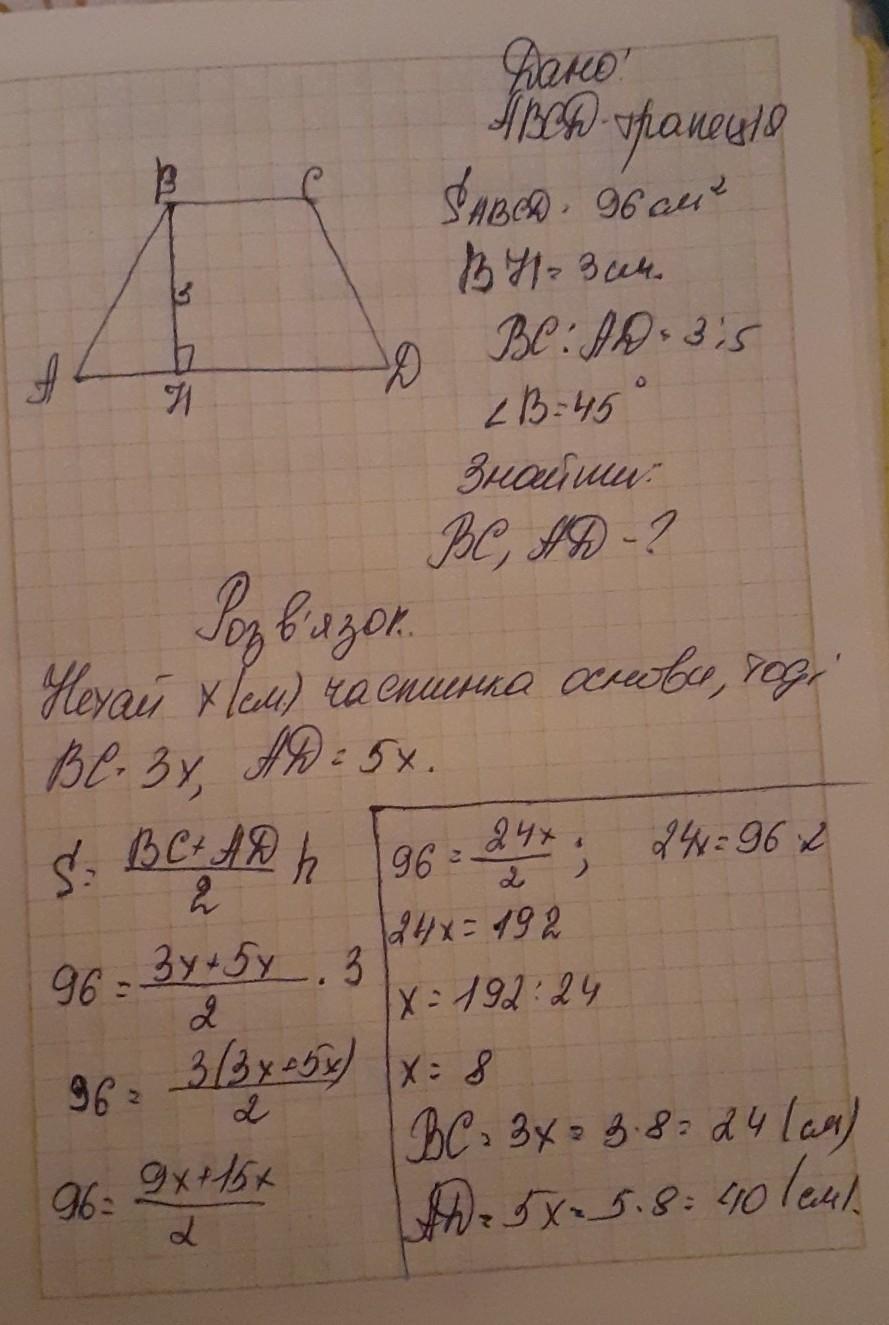 Дано:
ABCD - трапеція
S ABCD = 96 см²
BH = 3 см.
BC : AD = 3:5
∠B = 45°
Знайти:
BC, AD - ?
B C
3
A H D
Розв'язок.
Нехай x (см) частинка основи, тоді
BC = 3x, AD = 5x.
S = \frac{BC + AD}{2} h
96 = \frac{3x + 5x}{2} · 3
96 = \frac{3(3x + 5x)}{2}
96 = \frac{9x + 15x}{2}
96 = \frac{24x}{2} ; 24x = 96 · 2
24x = 192
x = 192 : 24
x = 8
BC = 3x = 3 · 8 = 24 (см)
AD = 5x = 5 · 8 = 40 (см).